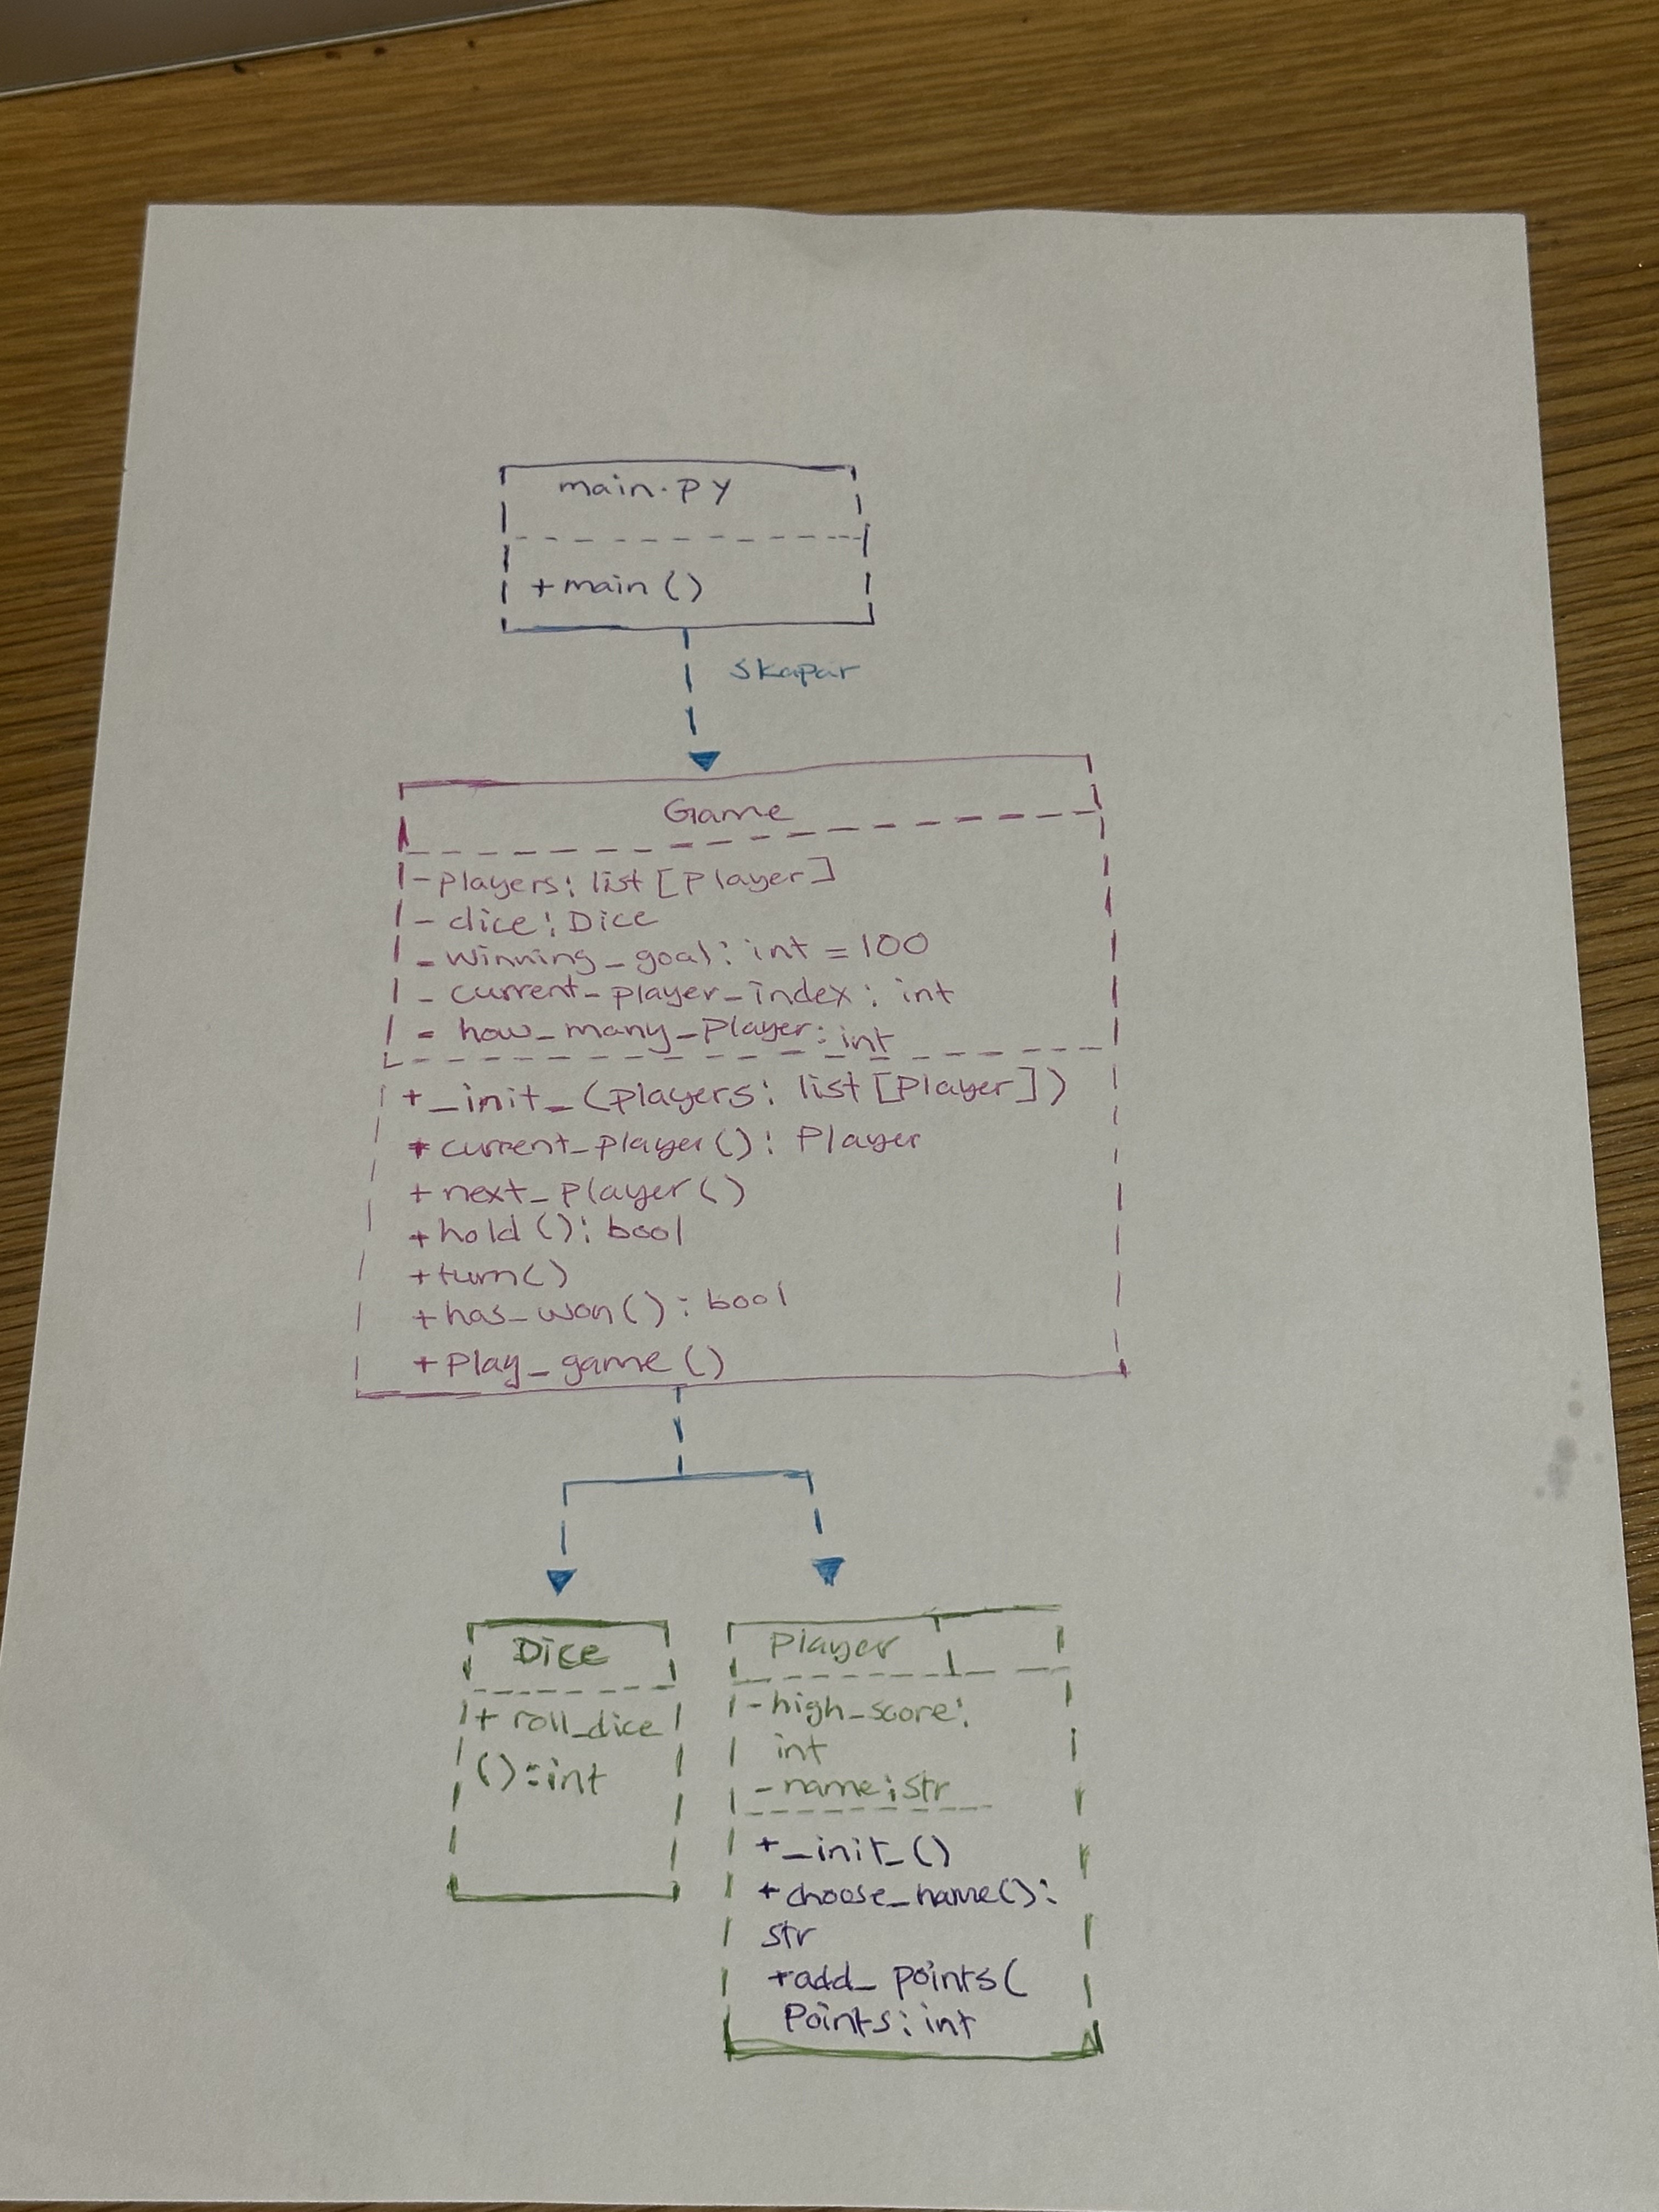 main.py
+main()
skapar
Game
-players: list[Player]
- dice: Dice
- winning_goal: int = 100
- current_player_index: int
- how_many_player: int
+_init_(players: list[Player])
+current_player(): Player
+next_player()
+hold(): bool
+turn()
+has_won(): bool
+play_game()
Dice
+ roll_dice
():int
Player
-high_score:
int
-name:str
+_init_()
+choose_name():
str
+add_points(
Points: int